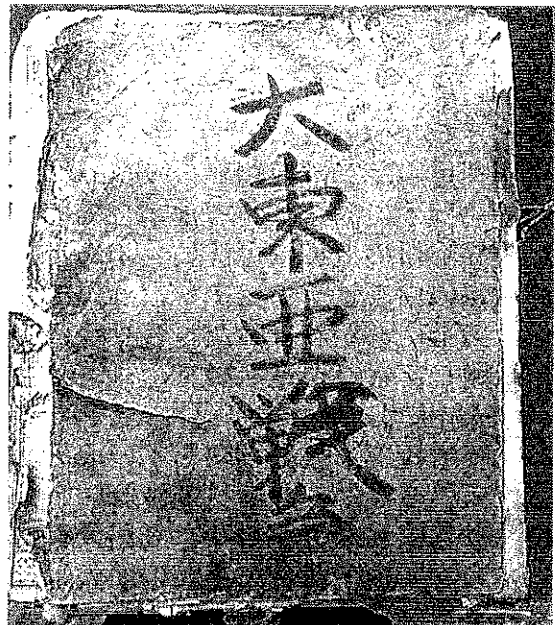 大東亜戦